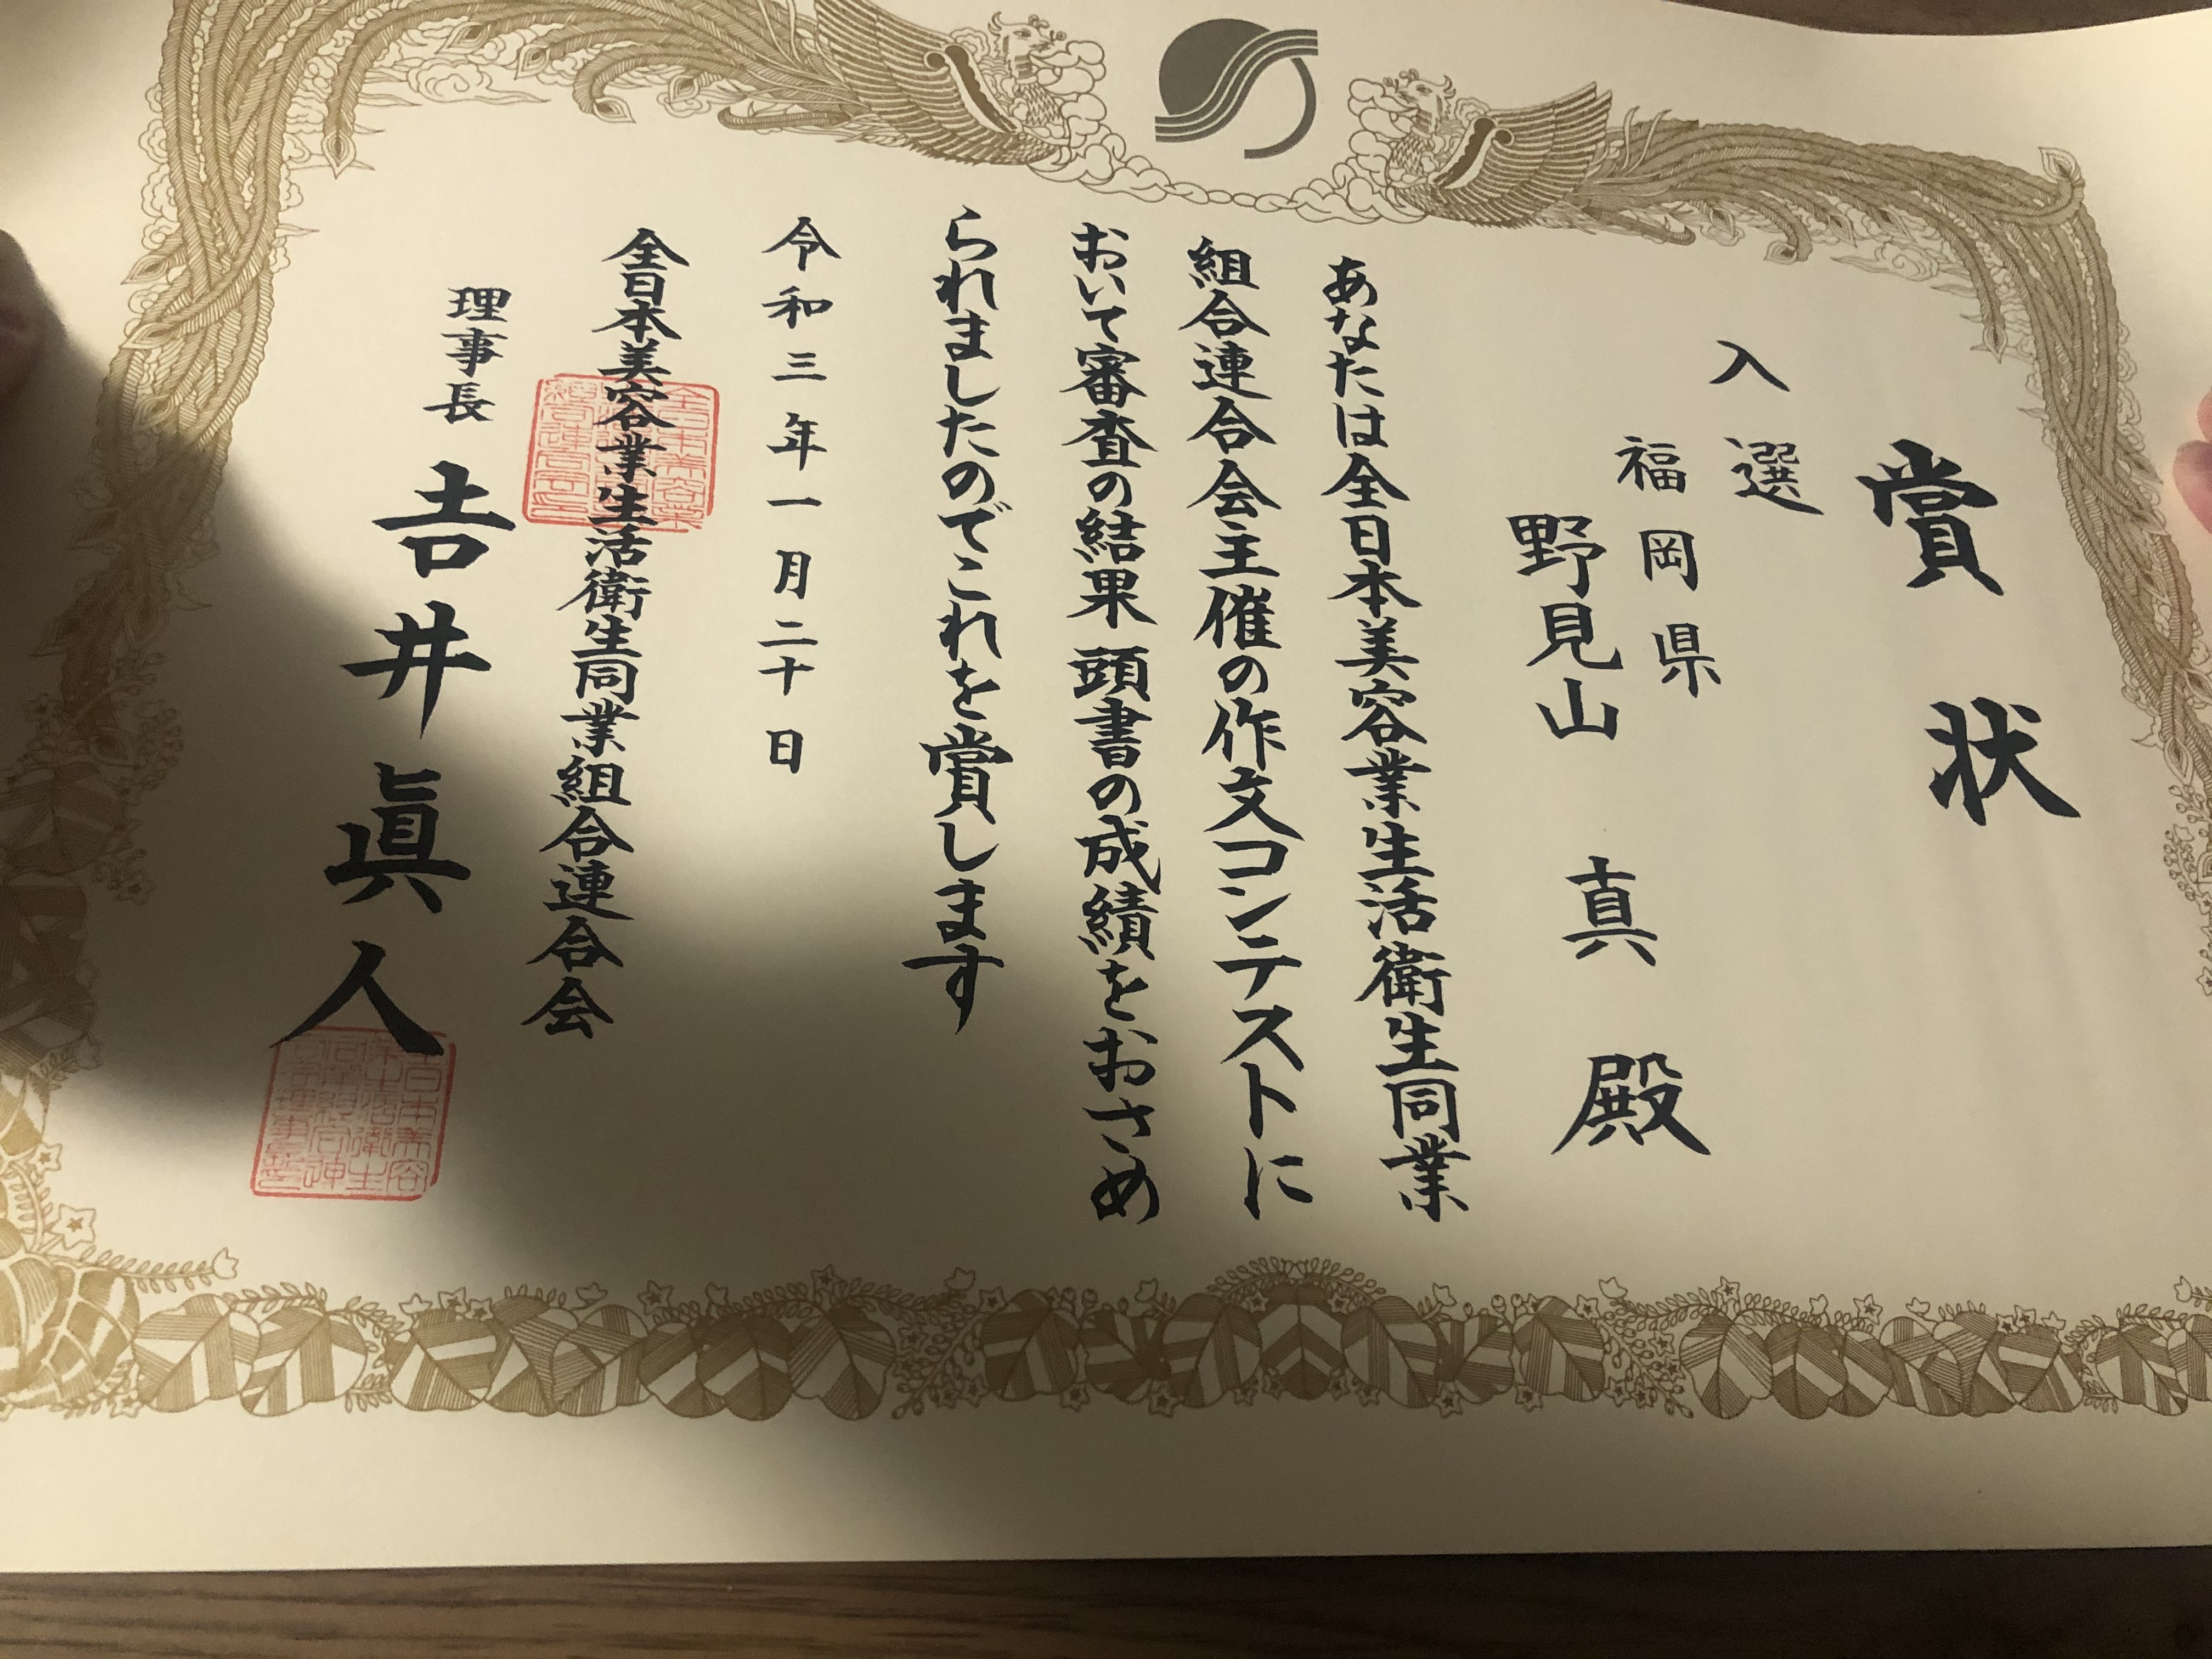 賞状
入選
福岡県
野見山 真 殿
あなたは全日本美容業生活衛生同業
組合連合会主催の作文コンテストに
おいて審査の結果頭書の成績をおさめ
られましたのでこれを賞します
令和三年一月二十日
全日本美容業生活衛生同業組合連合会
理事長 𠮷井眞人